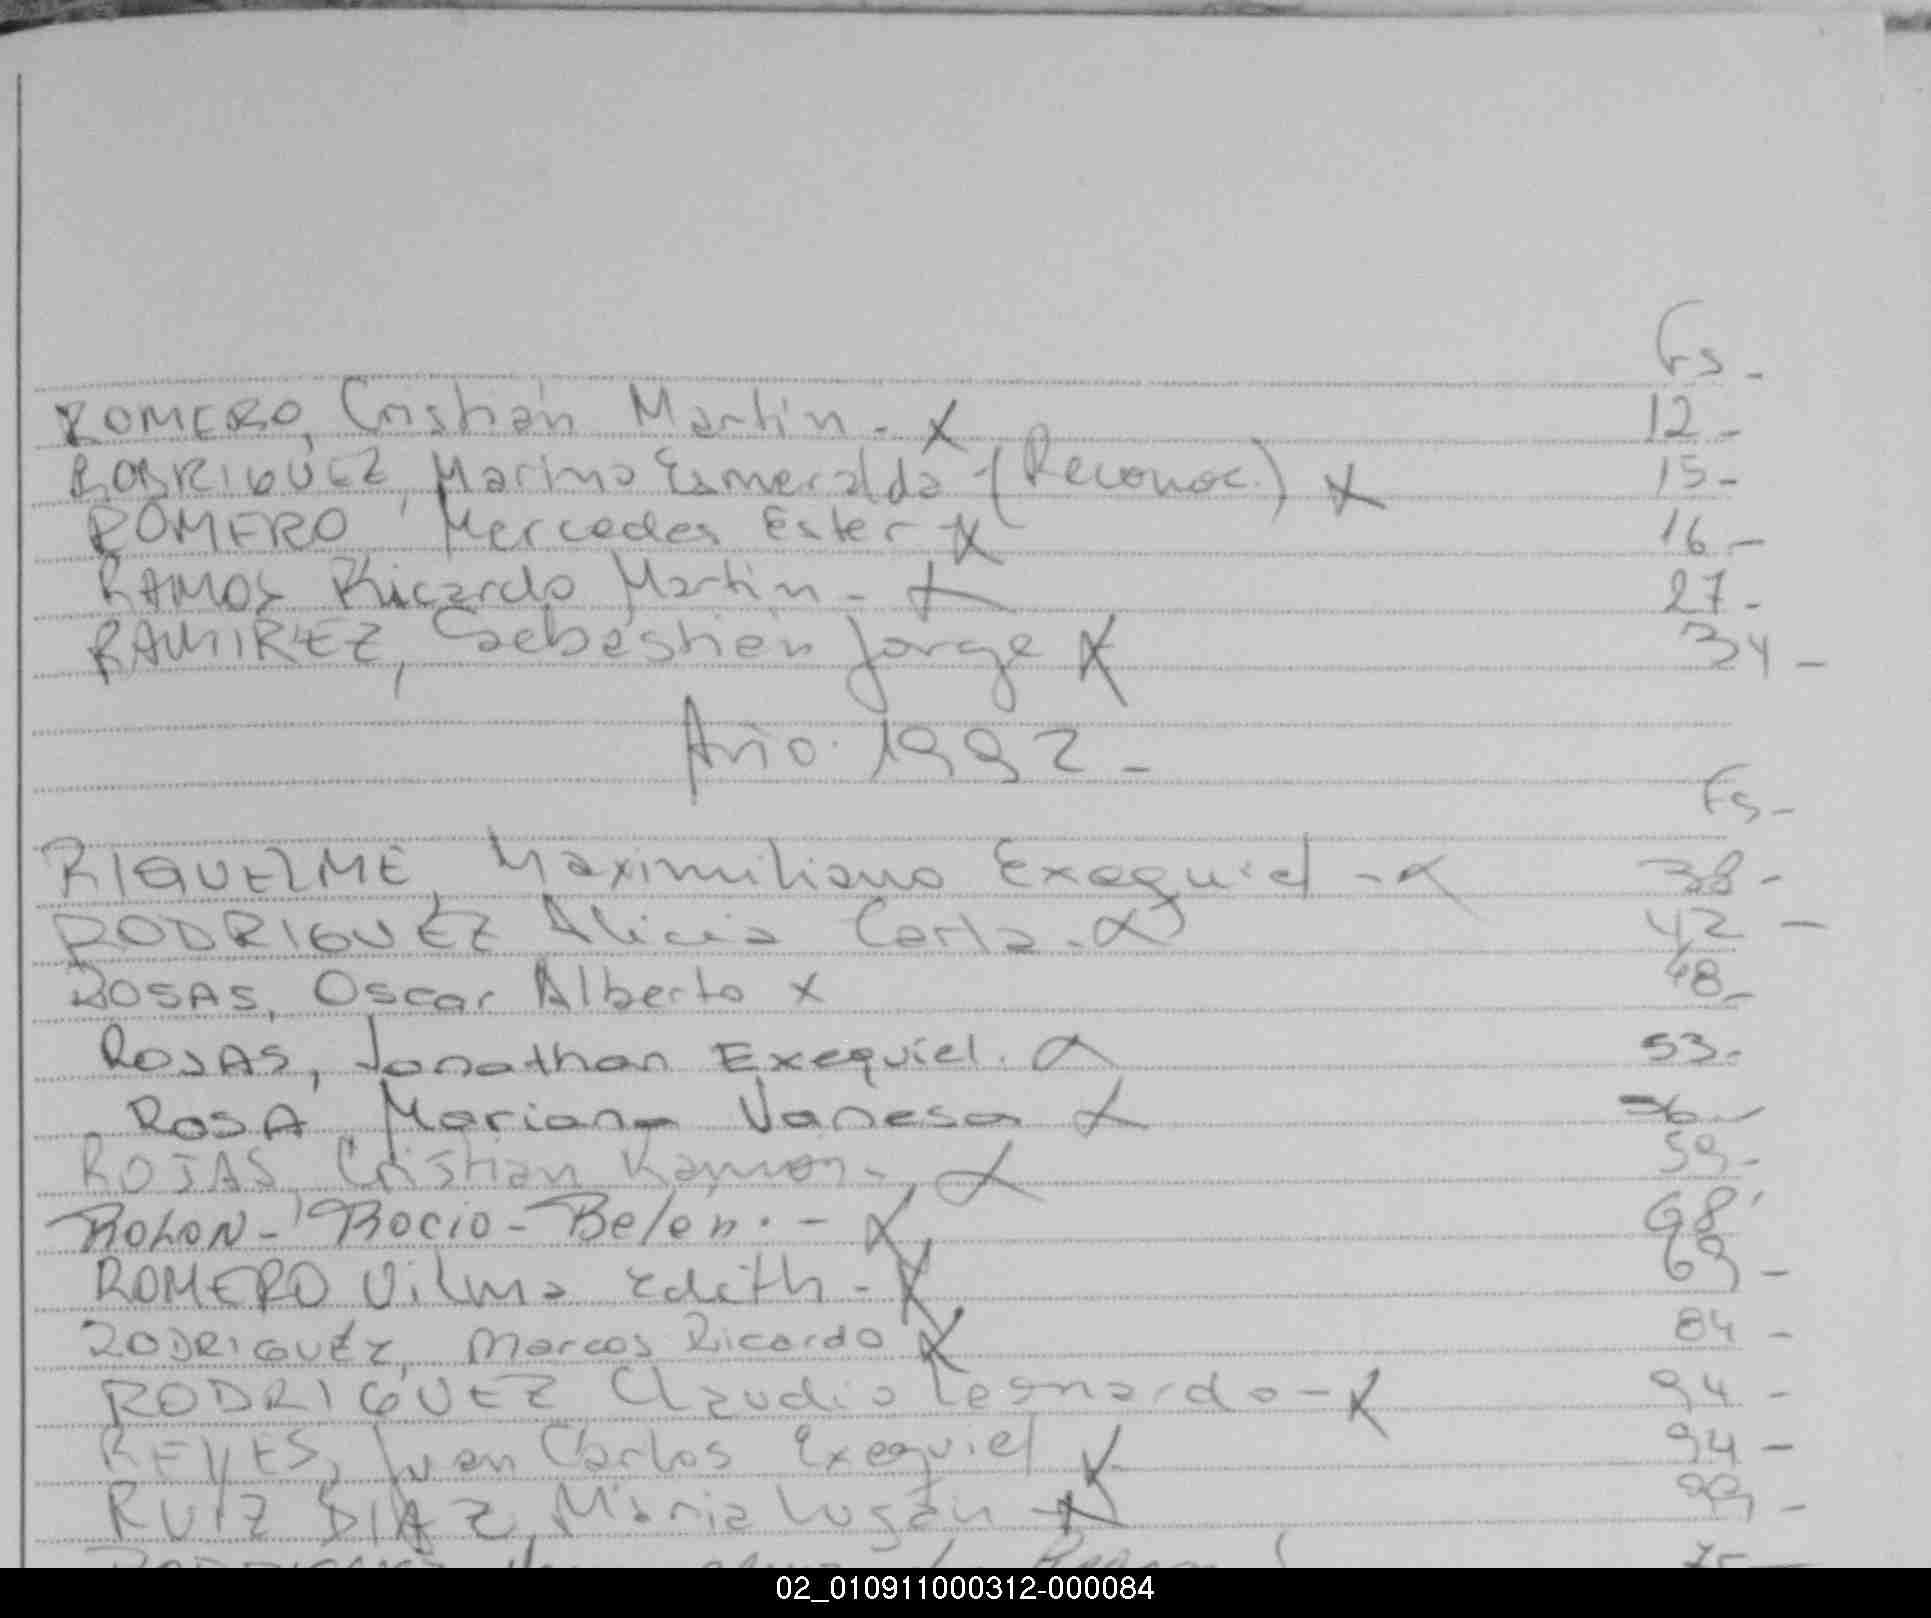 Fs -
ROMERO, Cristian Martin - X 12 -
RODRIGUEZ, Marina Esmeralda - (Reconoc.) X 15 -
ROMERO, Mercedes Ester X 16 -
RAMOS Ricardo Martin - X 27 -
RAMIREZ, Sebastian Jorge X 34 -
Año 1992 -
Fs -
RIQUELME, Maximiliano Exequiel - X 38 -
RODRIGUEZ Alicia Carla - X 42 -
ROSAS, Oscar Alberto X 48 -
ROJAS, Jonathan Exequiel. X 53 -
ROSA, Mariana Vanesa X 56 -
ROJAS, Cristian Ramon - X 59 -
ROLON - Rocio - Belen. - X 68
ROMERO Vilma Edith - X 69 -
RODRIGUEZ, Marcos Ricardo X 84 -
RODRIGUEZ Claudio Leonardo - X 94 -
REYES, Juan Carlos Exequiel X 94 -
RUIZ DIAZ, Maria X 99 -
02_010911000312-000084